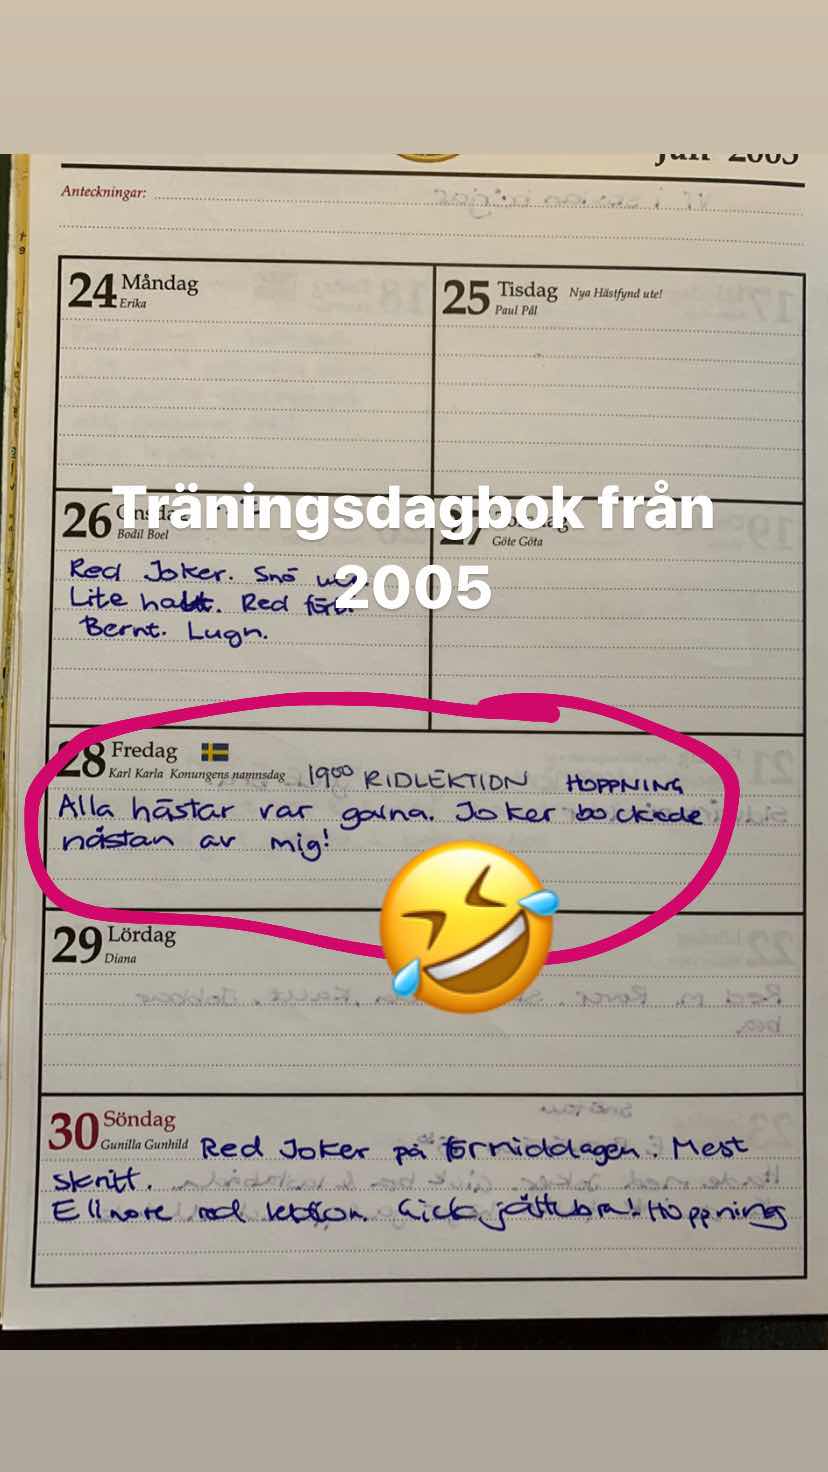 Juli 2005
Anteckningar:
24 Måndag
Erika
25 Tisdag Nya Hästfynd ute!
Paul Pål
Träningsdagbok från
2005
26 Onsdag
Bodil Boel
Red Joker. Snö
Lite halt. Red
Bernt. Lugn.
27
Göte Göta
28 Fredag
Karl Karla Konungens namnsdag 19⁰⁰ RIDLEKTION HOPPNING
Alla hästar var galna. Joker bockade
nästan av mig!
29 Lördag
Diana
30 Söndag
Gunilla Gunhild Red Joker på förmiddagen. Mest
skritt.
Ellnore red lektion. Gick jättebra! Hoppning